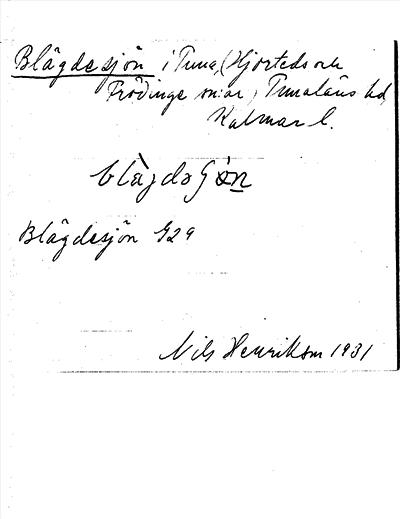 Blågdesjön i Tuna, (Hjorteds och
Frödinge sn:ar, Tunaläns hd,
Kalmar l.
Blågdesjön G29
Nils Henrikson 1931